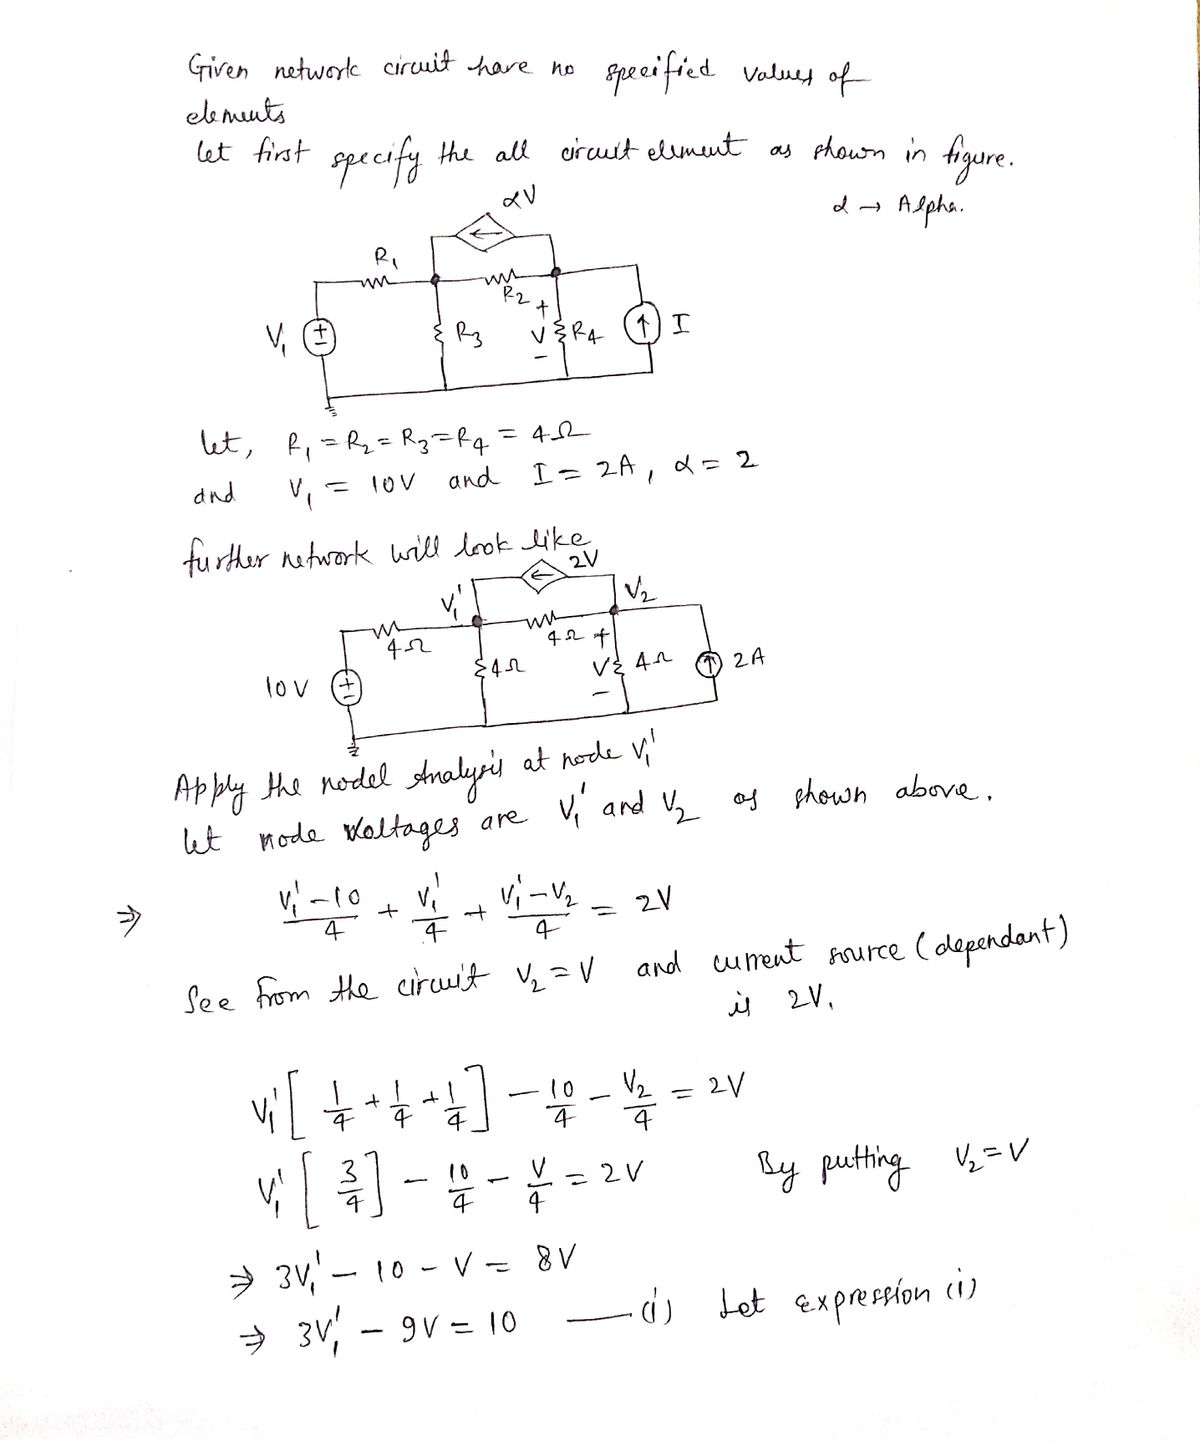 Given network circuit have no specified values of
elements
let first specify the all circuit element as shown in figure.
α → Alpha.
αV
R₁
R₂
+
V₁
+
R₃
V
R₄
I
let, R₁ = R₂ = R₃ = R₄ = 4Ω
and V₁ = 10V and I = 2A, α = 2
further network will look like
2V
V₁'
V₂
4Ω
4Ω +
4Ω
V
4Ω
2A
10V
+
Apply the nodel Analysis at node V₁'
let node Voltages are V₁' and V₂ as shown above.
⇒ (V₁'-10)/4 + V₁'/4 + (V₁'-V₂)/4 = 2V
See from the circuit V₂ = V and current source (dependant)
is 2V.
V₁'[1/4 + 1/4 + 1/4] - 10/4 - V₂/4 = 2V
V₁'[3/4] - 10/4 - V/4 = 2V By putting V₂ = V
⇒ 3V₁' - 10 - V = 8V
⇒ 3V₁' - 9V = 10 —(i) Let expression (i)